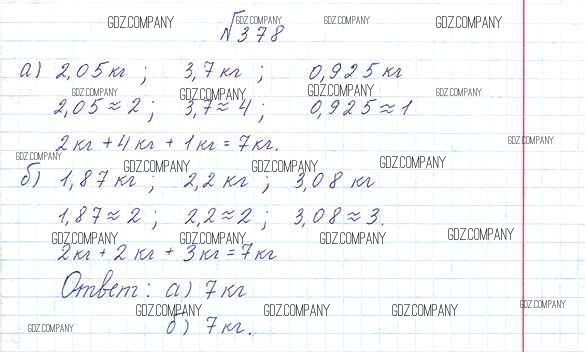 №378
а) 2,05 кг ; 3,7 кг ; 0,925 кг
2,05 ≈ 2 ; 3,7 ≈ 4 ; 0,925 ≈ 1
2 кг + 4 кг + 1 кг = 7 кг.
б) 1,87 кг ; 2,2 кг ; 3,08 кг
1,87 ≈ 2 ; 2,2 ≈ 2 ; 3,08 ≈ 3.
2 кг + 2 кг + 3 кг = 7 кг
Ответ: а) 7 кг
б) 7 кг.
GDZ.COMPANY GDZ.COMPANY GDZ.COMPANY GDZ.COMPANY
GDZ.COMPANY GDZ.COMPANY GDZ.COMPANY GDZ.COMPANY
GDZ.COMPANY
GDZ.COMPANY GDZ.COMPANY GDZ.COMPANY GDZ.COMPANY
GDZ.COMPANY GDZ.COMPANY GDZ.COMPANY GDZ.COMPANY
GDZ.COMPANY GDZ.COMPANY GDZ.COMPANY GDZ.COMPANY
GDZ.COMPANY